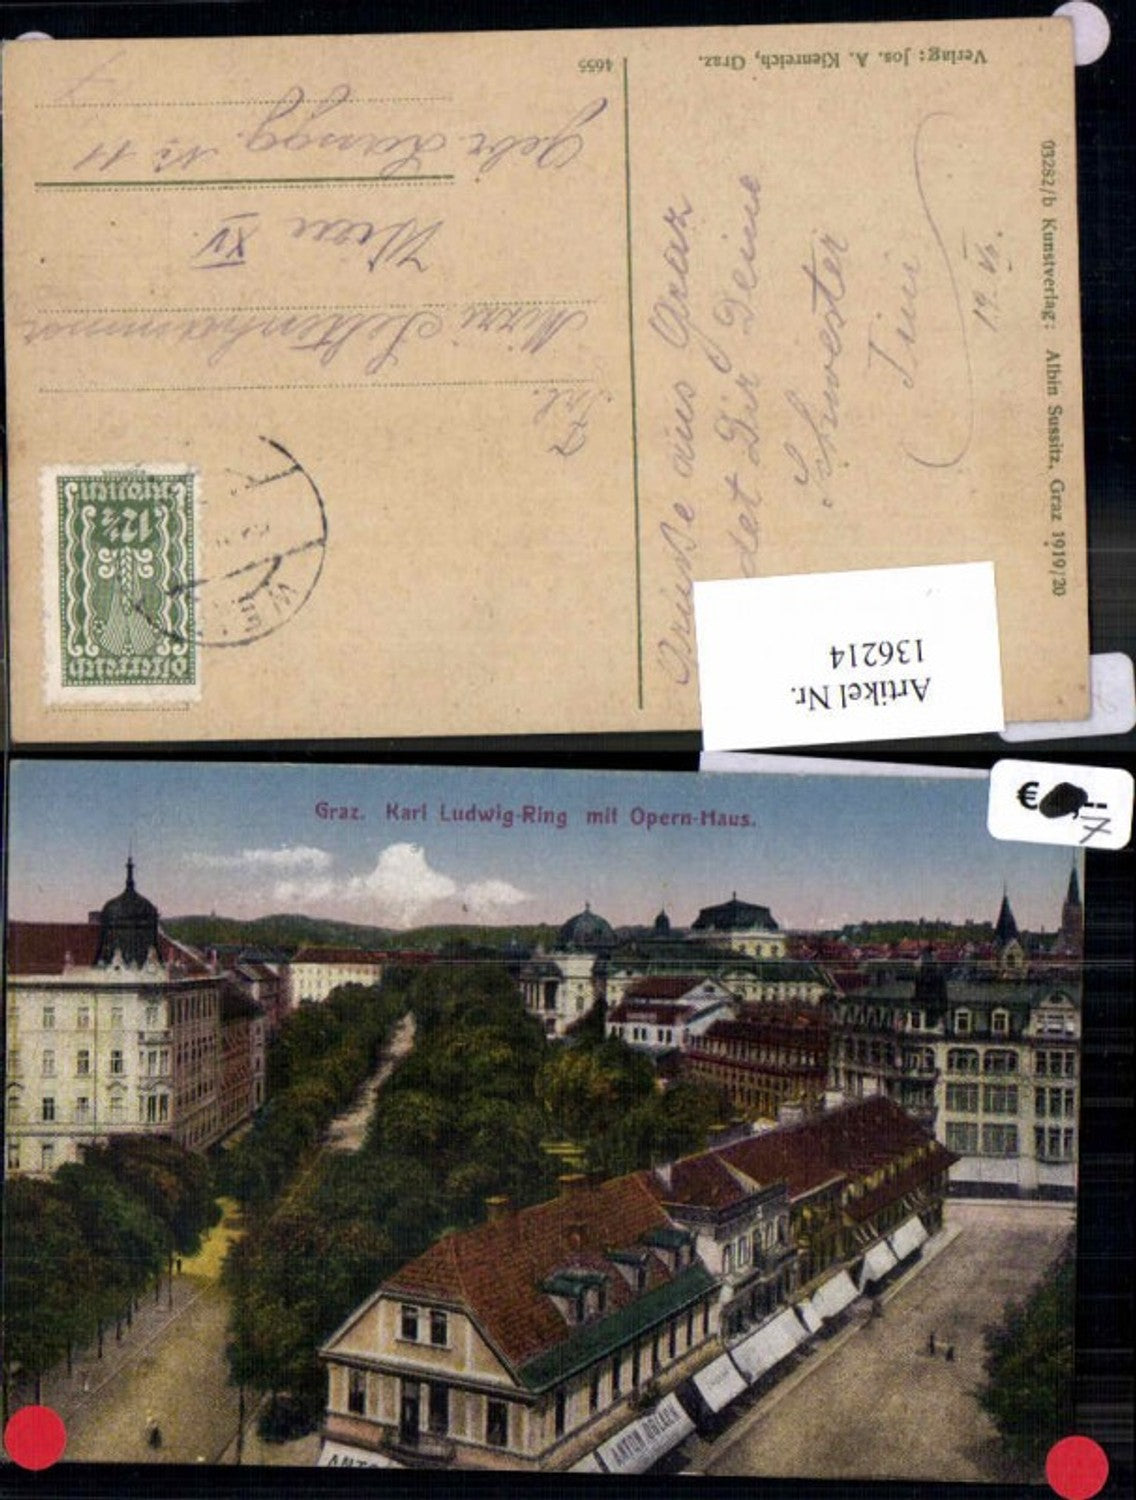 Verlag: Jos. A. Kienreich, Graz.
4655
03282/b Kunstverlag: Albin Sussitz, Graz 1919/20
Grüße aus Graz
det Dir Deine
Schwester
Tini
19. VI.
Frl.
Mizzi
Wien XV.
Gebr. Langg. No 11
7
12½
Österreich
Artikel Nr.
136214
€ ,--
7
Graz. Karl Ludwig-Ring mit Opern-Haus.
ANTO
ANTON